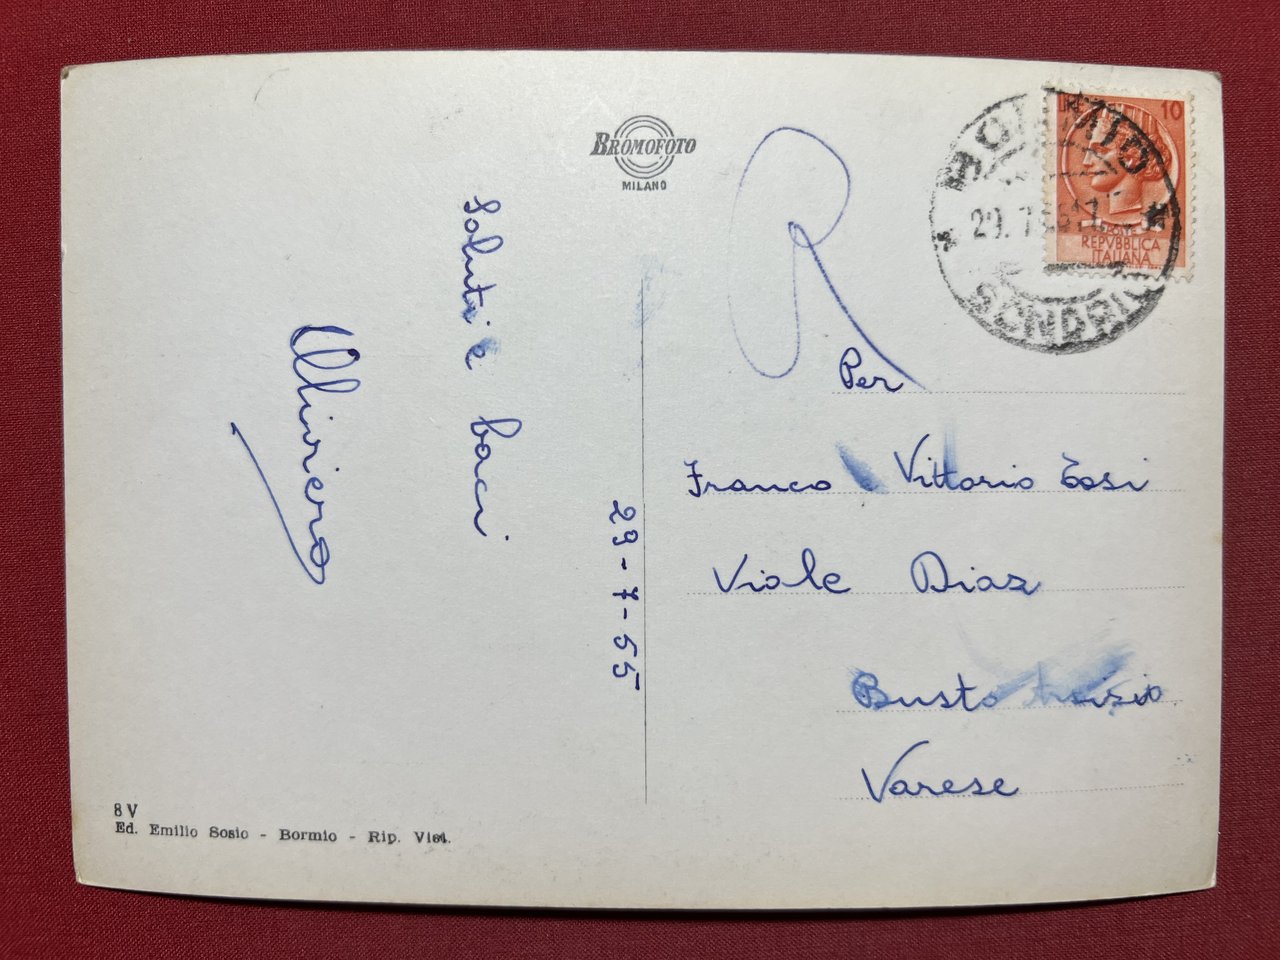 BROMOFOTO
MILANO
Saluti e baci
Olliviero
29-7-55
R
Per
Franco e Vittorio Tosi
Viale Diaz
Busto Arsizio
Varese
10
REPVBBLICA
ITALIANA
BORMIO
SONDRIO
8 V
Ed. Emilio Sosio - Bormio - Rip. Viet.